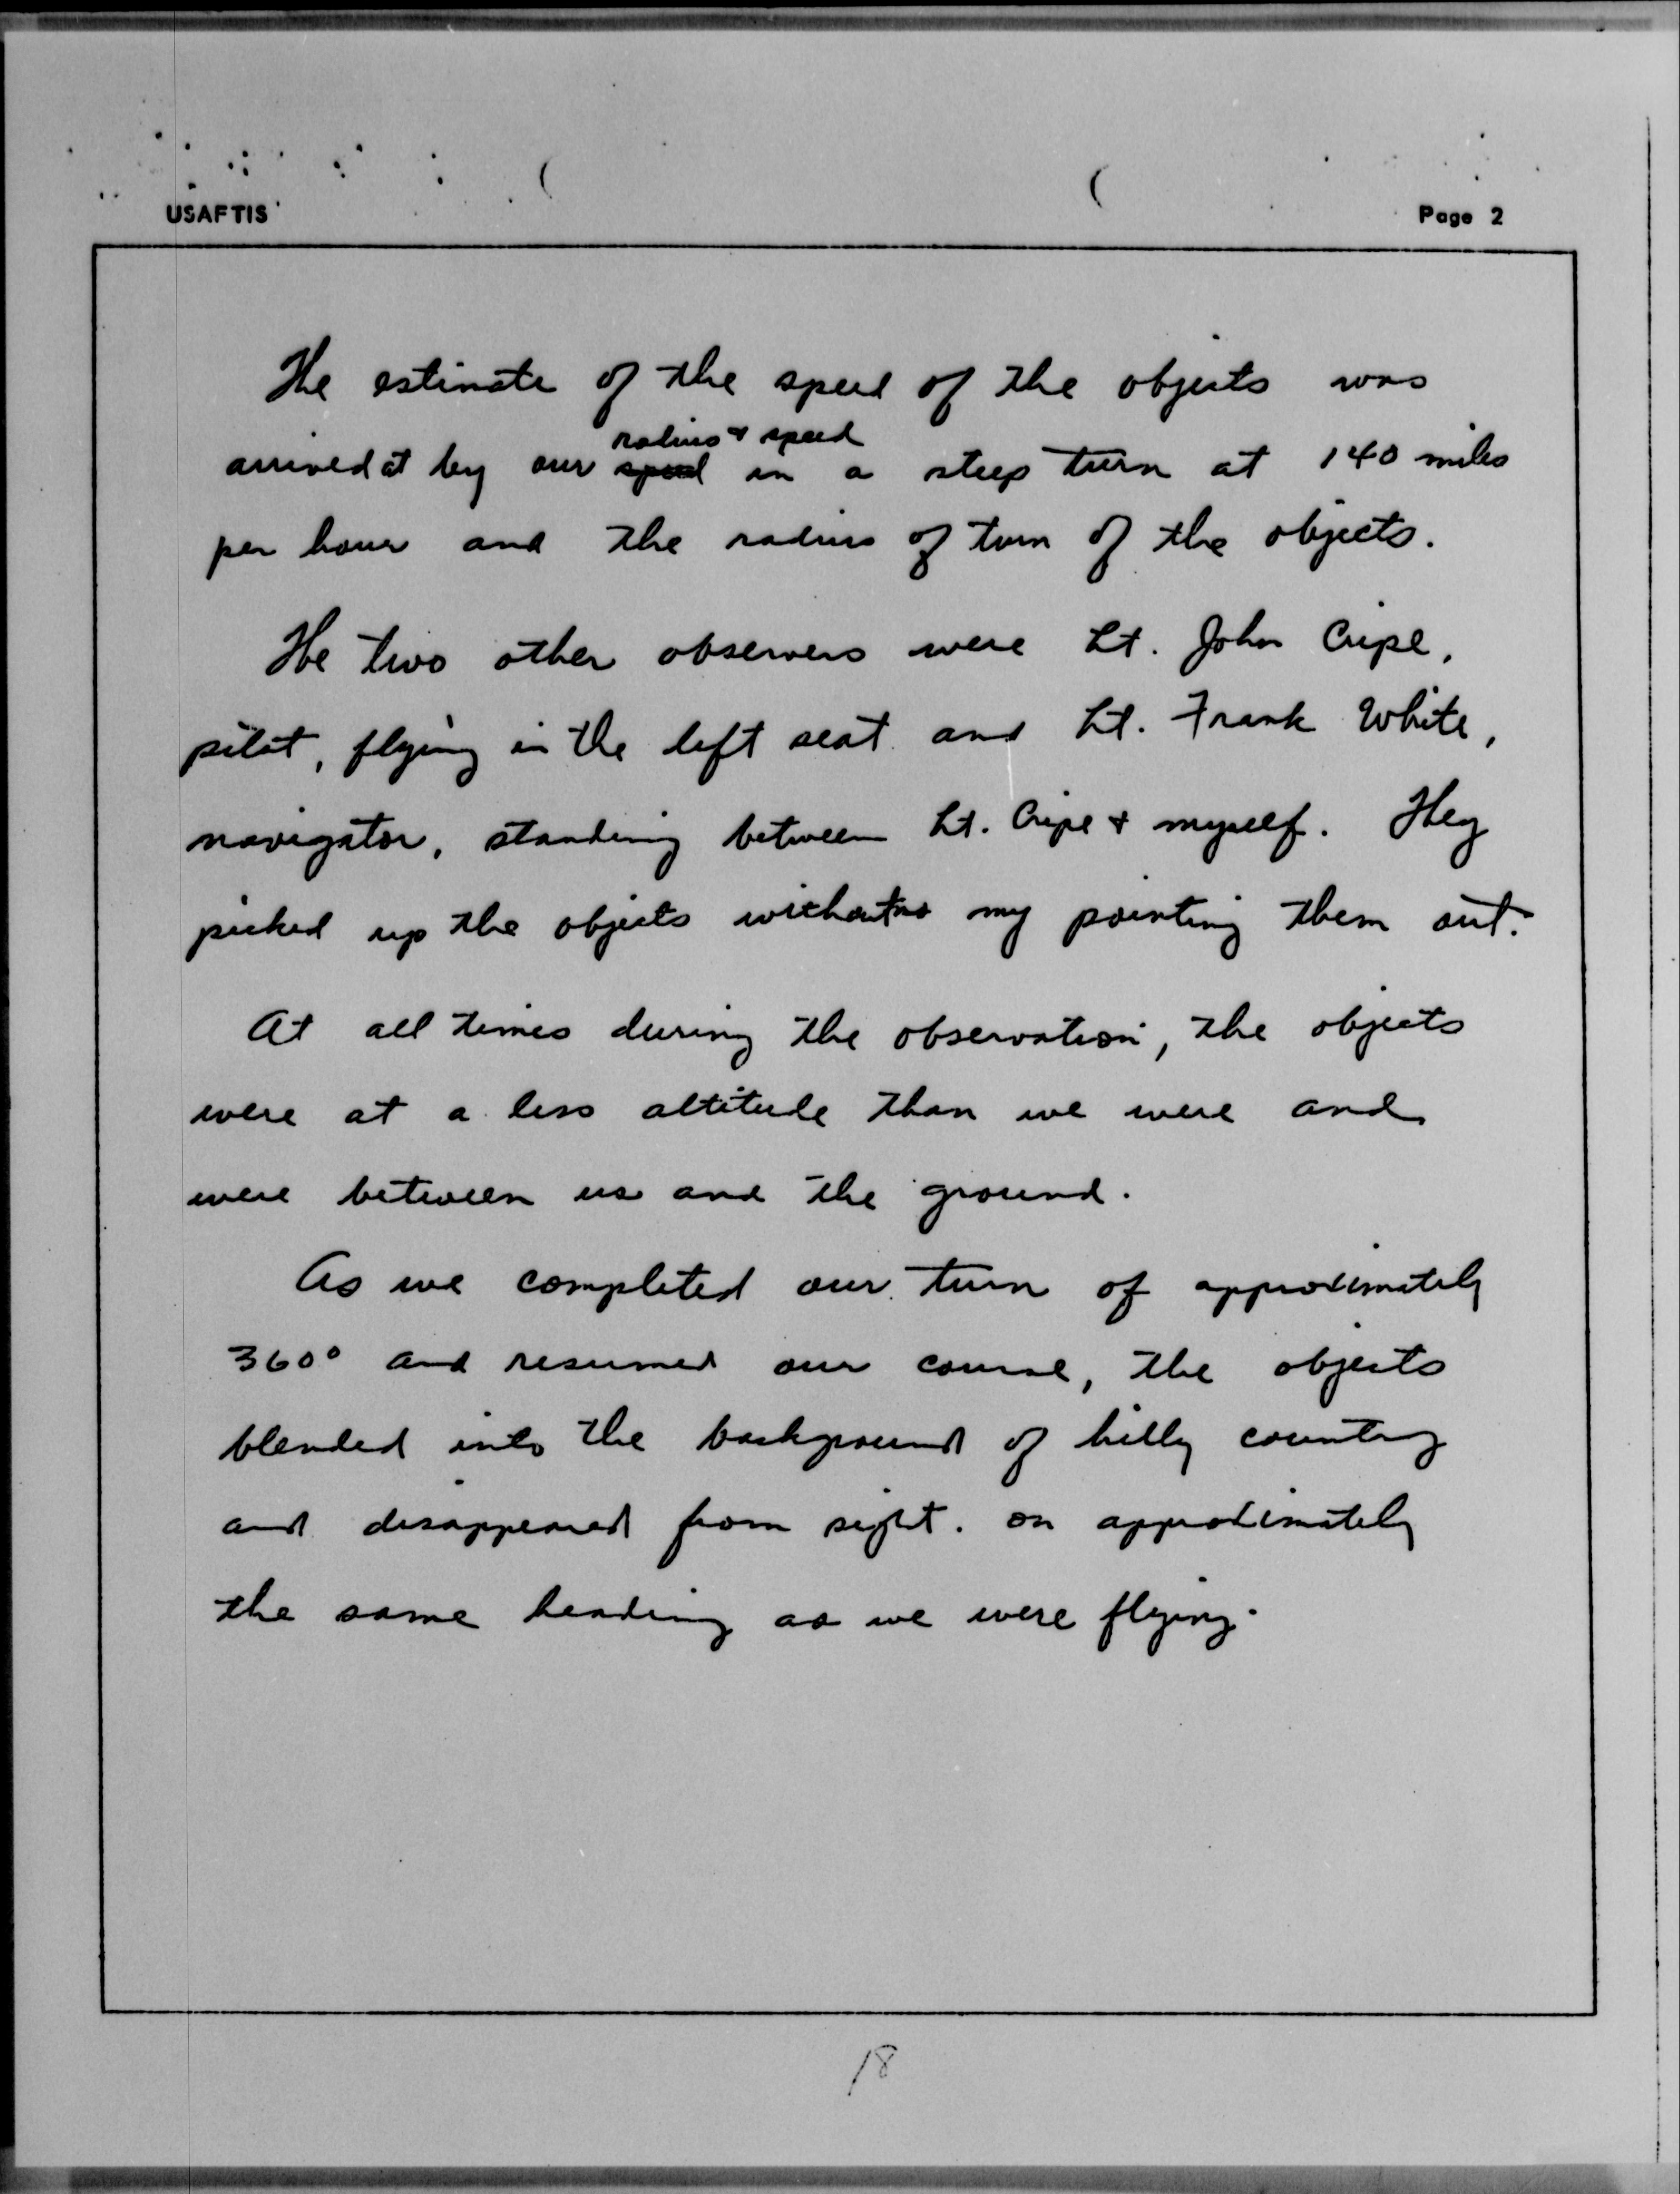 USAFTIS
Page 2
The estimate of the speed of the objects was
radius & speed
arrived at by our speed in a steep turn at 140 miles
per hour and the radius of turn of the objects.
The two other observers were Lt. John Cripe,
pilot, flying in the left seat and Lt. Frank White,
navigator, standing between Lt. Cripe & myself. They
picked up the objects without my pointing them out.
At all times during the observation, the objects
were at a less altitude than we were and
were between us and the ground.
As we completed our turn of approximately
360° and resumed our course, the objects
blended into the background of hilly country
and disappeared from sight. on approximately
the same heading as we were flying.
18